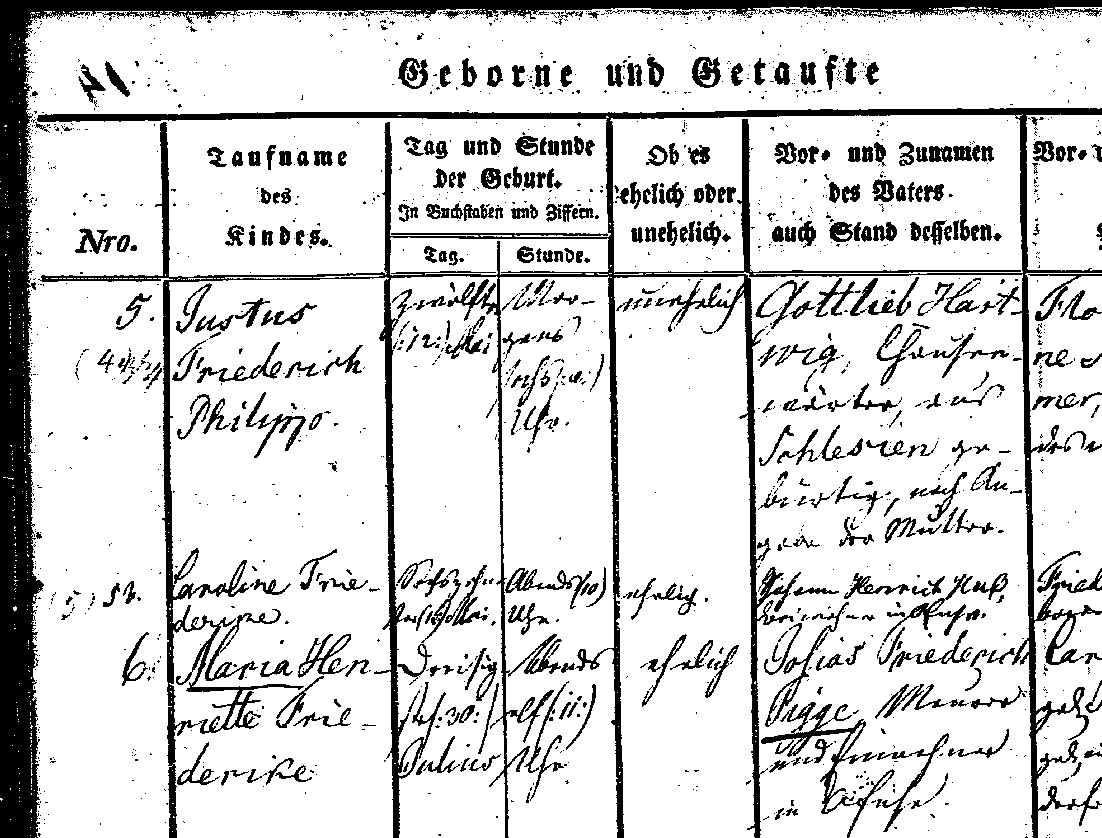 41.
Geborne und Getaufte
Nro.
Taufname
des
Kindes.
Tag und Stunde
der Geburt.
In Buchstaben und Ziffern.
Tag.
Stunde.
Ob es
ehelich oder
unehelich.
Vor- und Zunamen
des Vaters
auch Stand desselben.
Vor-
5.
Justus
Friederich
Philipp.
zwölfte
(:12:) Mai
Mor-
gens
sechs
Uhr.
unehelich
Gottlieb Hart-
wig, Chaussee-
wärter, aus
Schlesien ge-
bürtig, nach An-
gabe der Mutter.
Flo
ne
mer,
des
(5) 5b.
Caroline Frie-
derike.
Sechszehn-
Mai.
Abends (10)
Uhr.
ehelich.
Johann Henrich
in
Fried
6.
Maria Hen-
riette Frie-
derike
Dreisig-
ste (:30:)
Julius
Abends
elf (:11:)
Uhr
ehelich
Josias Friederich
Pigge, Maurer
und Einwohner
in
Car